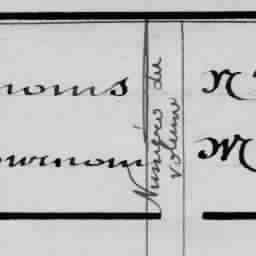 noms
ournom
Numéro du
volume
N
M